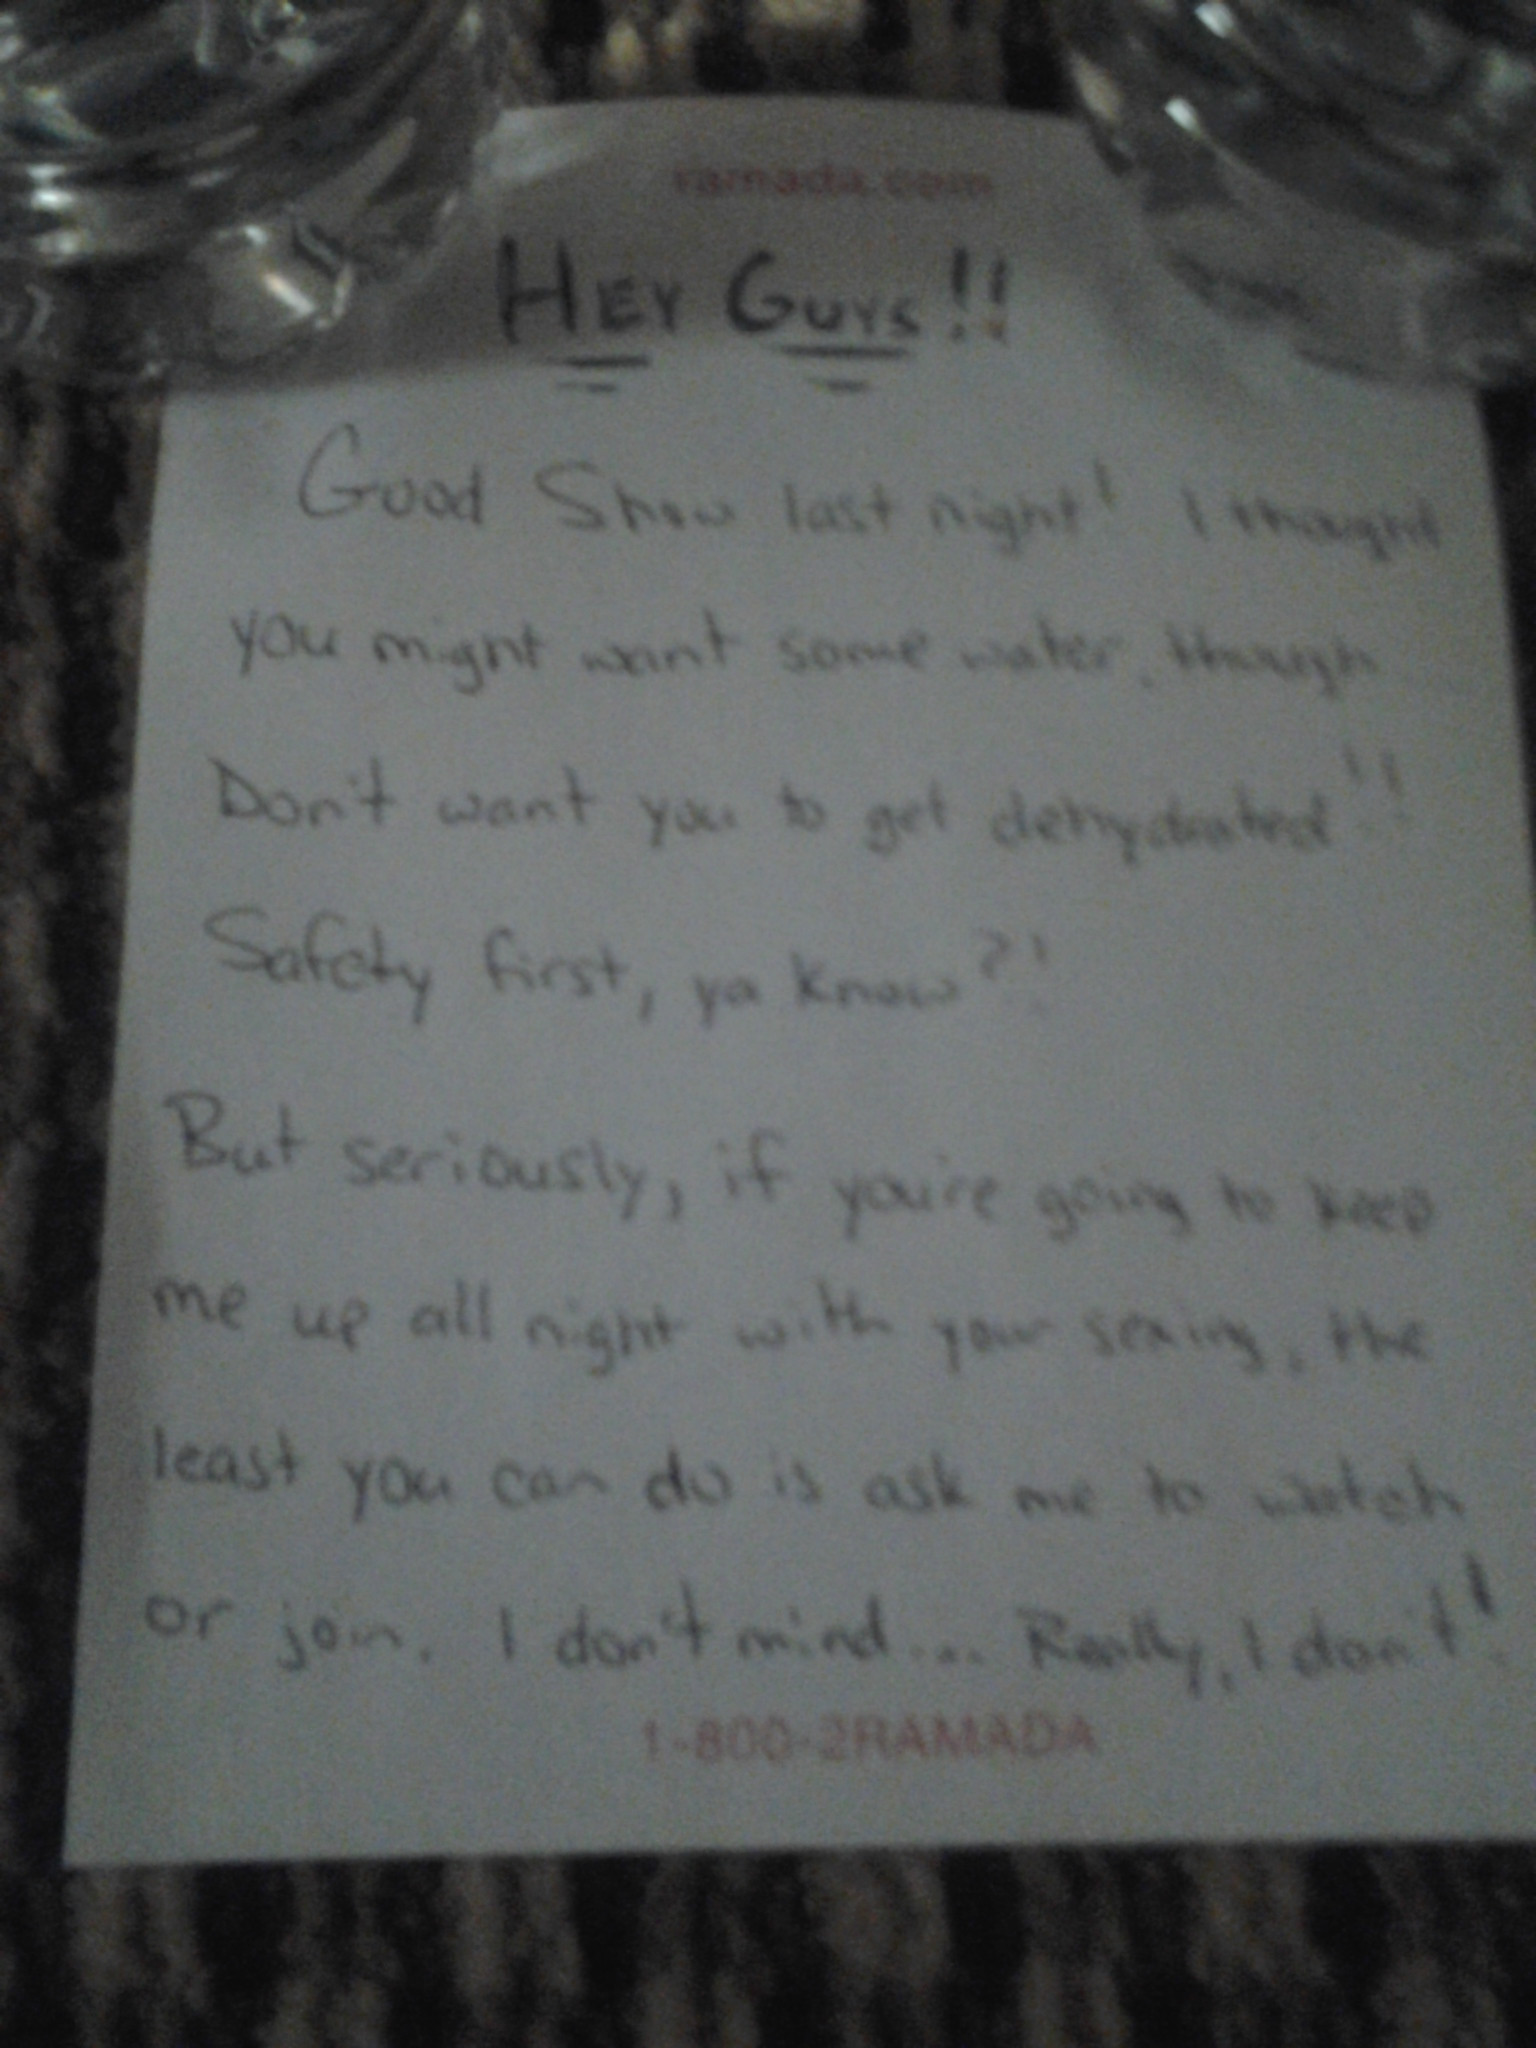 ramada.com
HEY GUYS!!
Good Show last night! I thought
you might want some water, though
Don't want you to get dehydrated!!
Safety first, ya know?!
But seriously, if you're going to keep
me up all night with your sexing, the
least you can do is ask me to watch
or join. I don't mind... Really, I don't!
1-800-2RAMADA